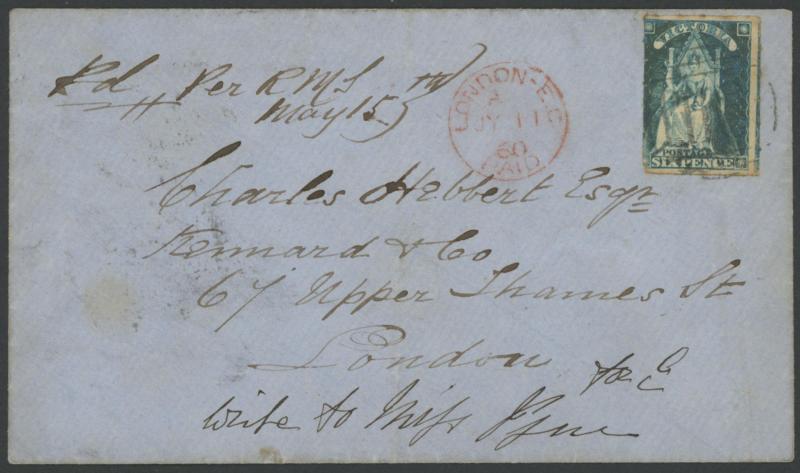 Rd Per RMS
May 15
LONDON-E.C
JY 11
60
PAID
VICTORIA
POSTAGE
SIXPENCE
Charles Hebbert Esqr
Kennard & Co
67 Upper Thames St
London
E
write to Miss